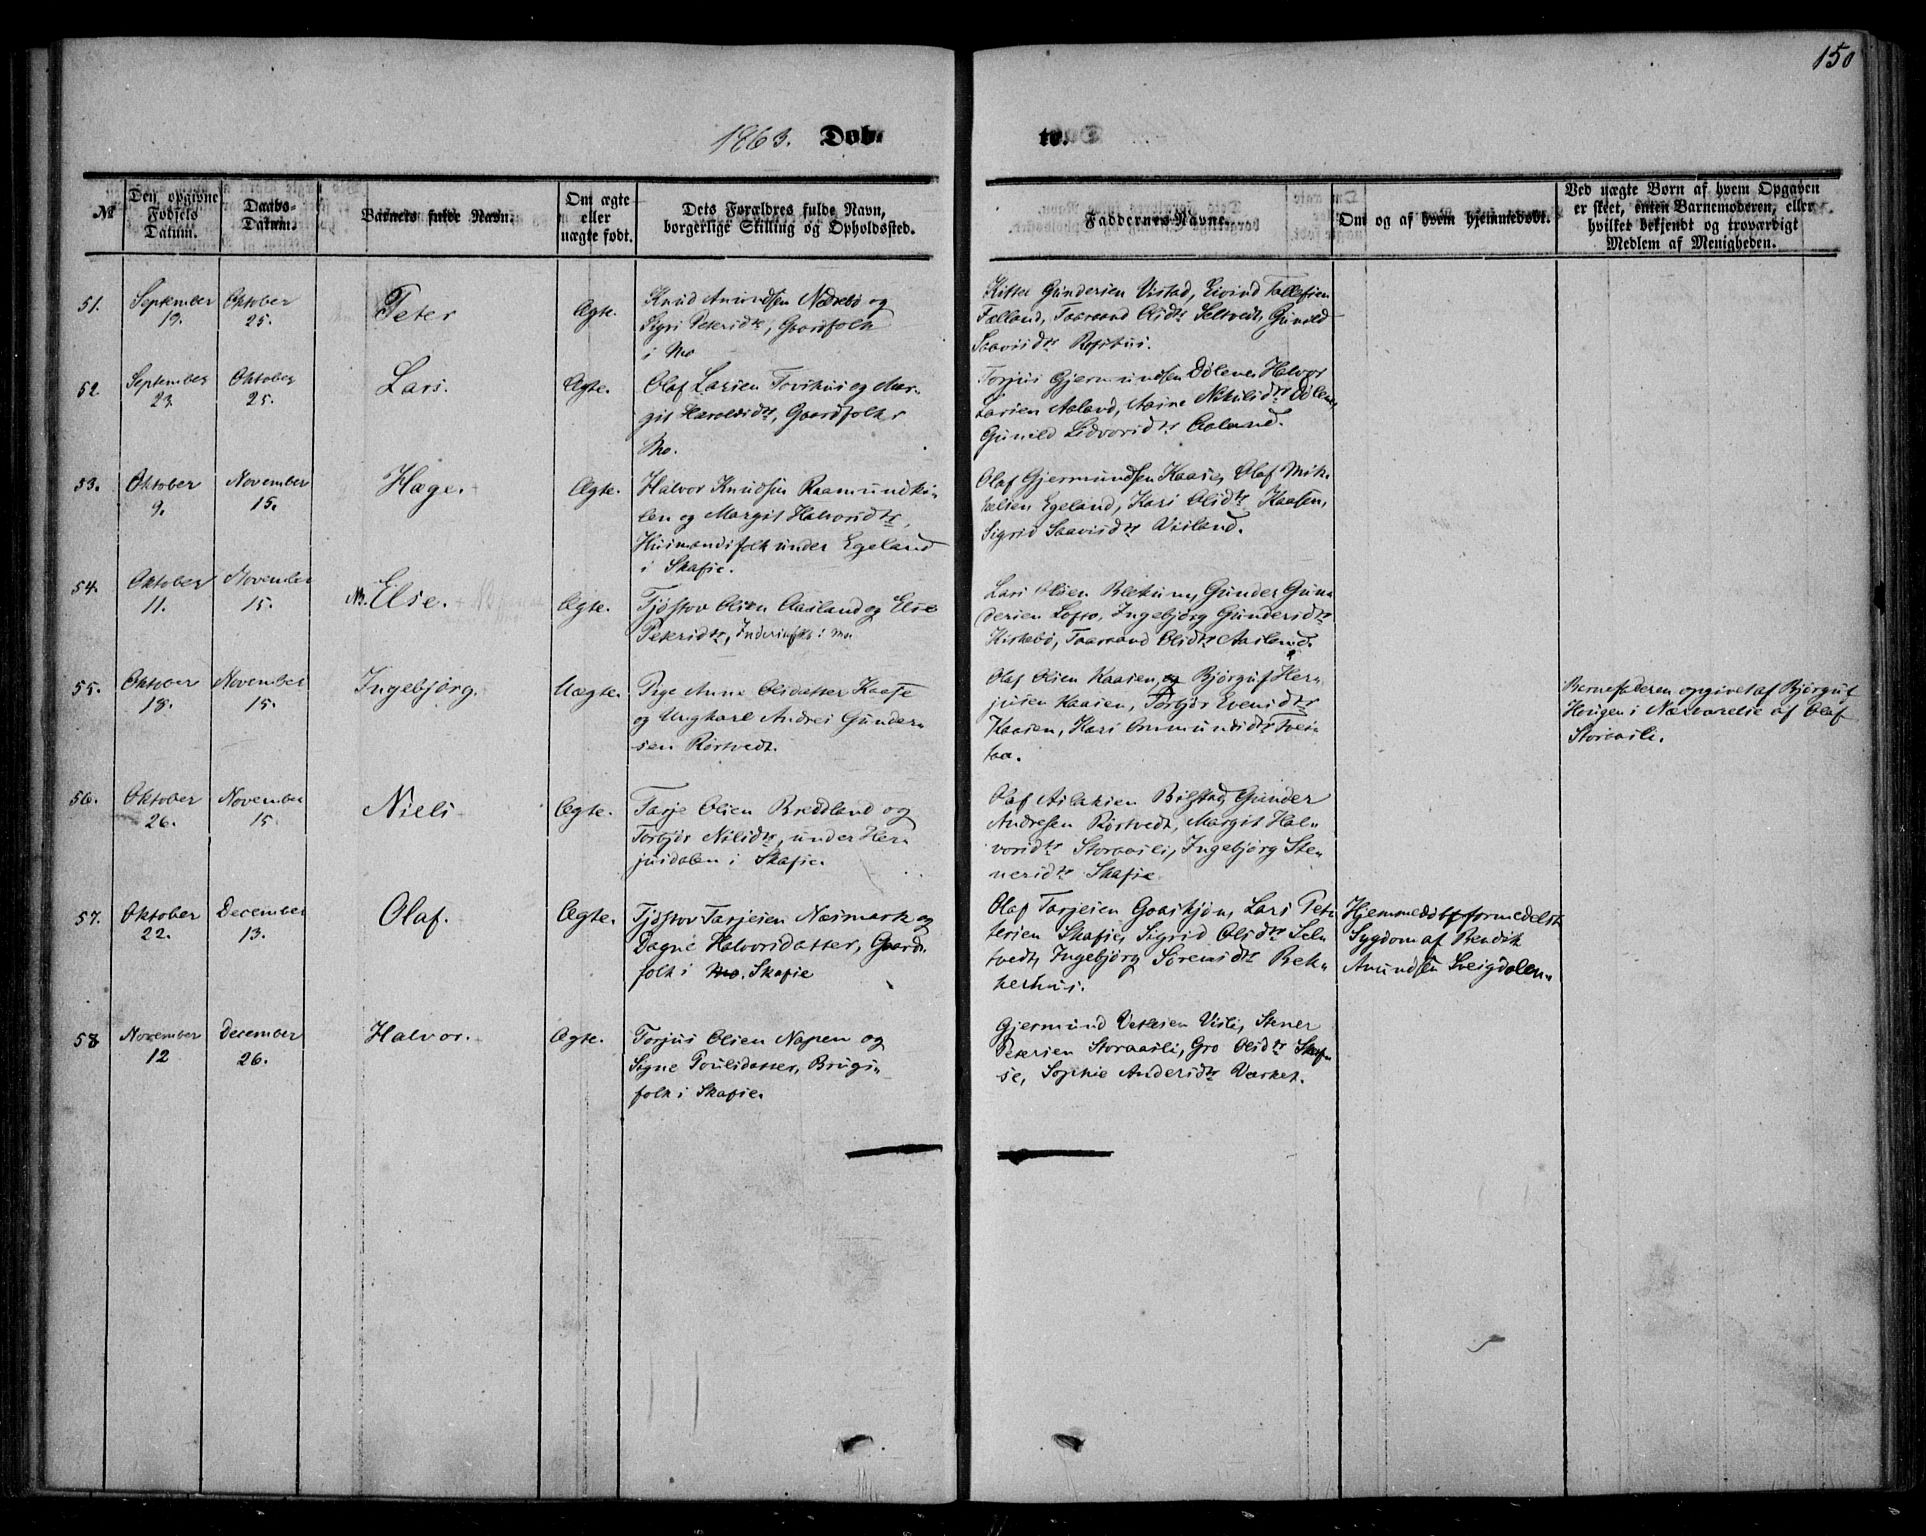 150
1863. Døb-
te.
№
Den opgivne
Fødsels
Datum.
Daabs-
Datum.
Barnets fulde Navn.
Om ægte
eller
uægte født.
Dets Forældres fulde Navn,
borgerlige Stilling og Opholdssted.
Faddernes Navne.
Om og af hvem hjemmedøbt.
Ved uægte Børn af hvem Opgaven
er skeet, enten Barnemoderen, eller
hvilket bekjendt og troværdigt
Medlem af Menigheden.
51.
September
19.
Oktober
25.
Peter
Ægte.
Knud Amundsen Nædrebø og
Sigri Petersdtr, Gaardfolk
i Mo
Kittel Gundersen Vistad, Eivind Tallefsen
Fælland, Taarand Olsdtr Seltvedt, Gunild
Saavisdtr Rosthus.
52.
September
23.
Oktober
25.
Lars.
Ægte.
Olaf Larsen Tovshus og Mar-
git Haroldsdtr, Gaardfolk i
Mo.
Torjus Gjermundsen Dølen, Halvor
Larsen Aaland, Aasne Nikulsdtr Dølen,
Gunild Lidvorsdtr Aaland.
53.
Oktober
9.
November
15.
Hæge.
Ægte.
Halvor Knudsen Raamundki-
len og Margit Halvorsdtr,
Husmandsfolk under Egeland
i Skafse.
Olaf Gjermundsen Kaase, Olaf Mik-
kelsen Egeland, Kari Olsdtr Kaasen,
Sigrid Saavisdtr Vaeland.
54.
Oktober
11.
November
15.
NB. Else.
Ægte.
Tjøstov Olsen Aasland og Else
Petersdtr, Inderstfolk i Mo
Lars Olsen Bekhus, Gunder Gun-
dersen Lofto, Ingebjørg Gundersdtr
Kirkebø, Taarand Olsdtr Aasland.
55.
Oktober
18.
November
15.
Ingebjørg.
Uægte.
Pige Anne Olsdatter Kaase
og Ungkarl Andres Gunder-
sen Rørtvedt.
Olaf Olsen Kaasen, Bjørguf Her-
jusen Kaasen, Torbjør Evensdtr
Kaasen, Kari Ommundsdtr Svei-
taa.
Barnefaderen opgivet af Bjørguf
Haugen i Nærværelse af Olaf
Storaasli.
56.
Oktober
26.
November
15.
Niels
Ægte.
Tarje Olsen Bredland og
Torbjør Nilsdtr, under Her-
jusdalen i Skafse.
Olaf Aslaksen Bilstad, Gunder
Andresen Rørtvedt, Margit Hal-
vorsdtr Storaasli, Ingebjørg Ste-
nersdtr Skafse.
57.
Oktober
22.
December
13.
Olaf.
Ægte.
Tjøstov Tarjesen Næsmark og
Dagne Halvorsdatter, Gaard-
folk i Mo. Skafse
Olaf Tarjesen Goaskjøn, Lars Pet-
tersen Skafse, Sigrid Olsdtr Sel-
tvedt, Ingebjørg Sørensdtr Bek-
kerhus.
Hjemmedøbt formedelst
Sygdom af Bendik
Amundsen Sveigdalen.
58
November
12
December
26.
Halvor.
Ægte.
Torjus Olsen Napen og
Signe Poulsdatter, Brugs-
folk i Skafse.
Gjermund Vetlesen Visli, Stener
Petersen Storaasli, Gro Olsdtr Skaf-
se, Sophie Andersdtr Værket.